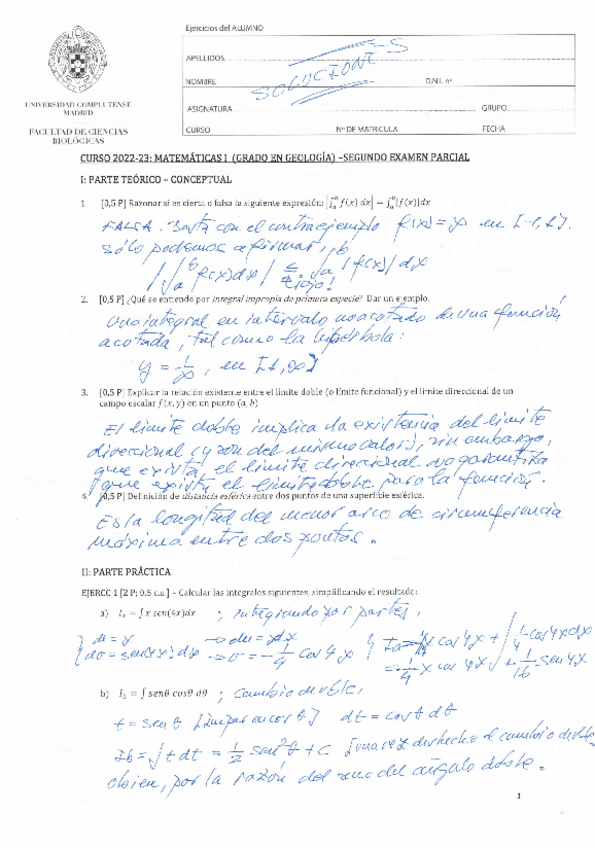 Ejercicios del ALUMNO
APELLIDOS
SOLUCIONES
NOMBRE D.N.I. nº
ASIGNATURA GRUPO
CURSO Nº DE MATRICULA FECHA
UNIVERSIDAD COMPLUTENSE
MADRID
FACULTAD DE CIENCIAS
BIOLÓGICAS
CURSO 2022-23: MATEMÁTICAS I (GRADO EN GEOLOGÍA) –SEGUNDO EXAMEN PARCIAL
I: PARTE TEÓRICO – CONCEPTUAL
1. [0,5 P] Razonar si es cierta o falsa la siguiente expresión: |∫ₐᵇ f(x) dx| = ∫ₐᵇ|f(x)|dx
FALSA. Basta con el contraejemplo f(x)=x en [-1,1].
Sólo podemos afirmar,
|∫ₐᵇ f(x)dx| ≤ ∫ₐᵇ |f(x)| dx
¡ojo!
2. [0,5 P] ¿Qué se entiende por integral impropia de primera especie? Dar un ejemplo.
Una integral en intervalo no acotado de una función
acotada, tal como la hipérbola:
y = 1/x, en [1,∞)
3. [0,5 P] Explicar la relación existente entre el límite doble (o límite funcional) y el límite direccional de un
campo escalar f(x, y) en un punto (a, b)
El límite doble implica la existencia del límite
direccional (y son del mismo valor), sin embargo,
que exista el límite direccional no garantiza
que exista el límite doble para la función.
4. [0,5 P] Definición de distancia esférica entre dos puntos de una superficie esférica.
Es la longitud del menor arco de circunferencia
máxima entre dos puntos.
II: PARTE PRÁCTICA
EJERCC 1 [2 P; 0.5 c.u.] – Calcular las integrales siguientes, simplificando el resultado:
a) Iₐ = ∫ x sen(4x)dx ; integrando por partes,
{ u = x → du = dx
{ dv = sen(4x) dx → v = -1/4 cos 4x } Ia = -1/4 x cos 4x + ∫ 1/4 cos 4x dx
= -1/4 x cos 4x + 1/16 sen 4x
b) I_b = ∫ senθ cosθ dθ ; Cambio de vble,
t = sen θ [impar en cos θ] dt = cos θ dθ
Ib = ∫ t dt = 1/2 sen²θ + C [una vez deshecho el cambio de vble]
o bien, por la razón del seno del ángulo doble.
1